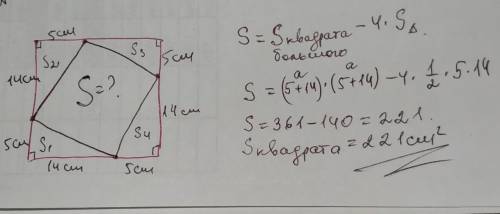 5см
S2
S3
5см
14см
S=?.
14см
5см
S1
S4
14см
5см
S = Sквадрата - 4 · SΔ.
большого
a a
S = (5+14)·(5+14) - 4 · 1/2 · 5 · 14
S = 361 - 140 = 221.
Sквадрата = 221см²